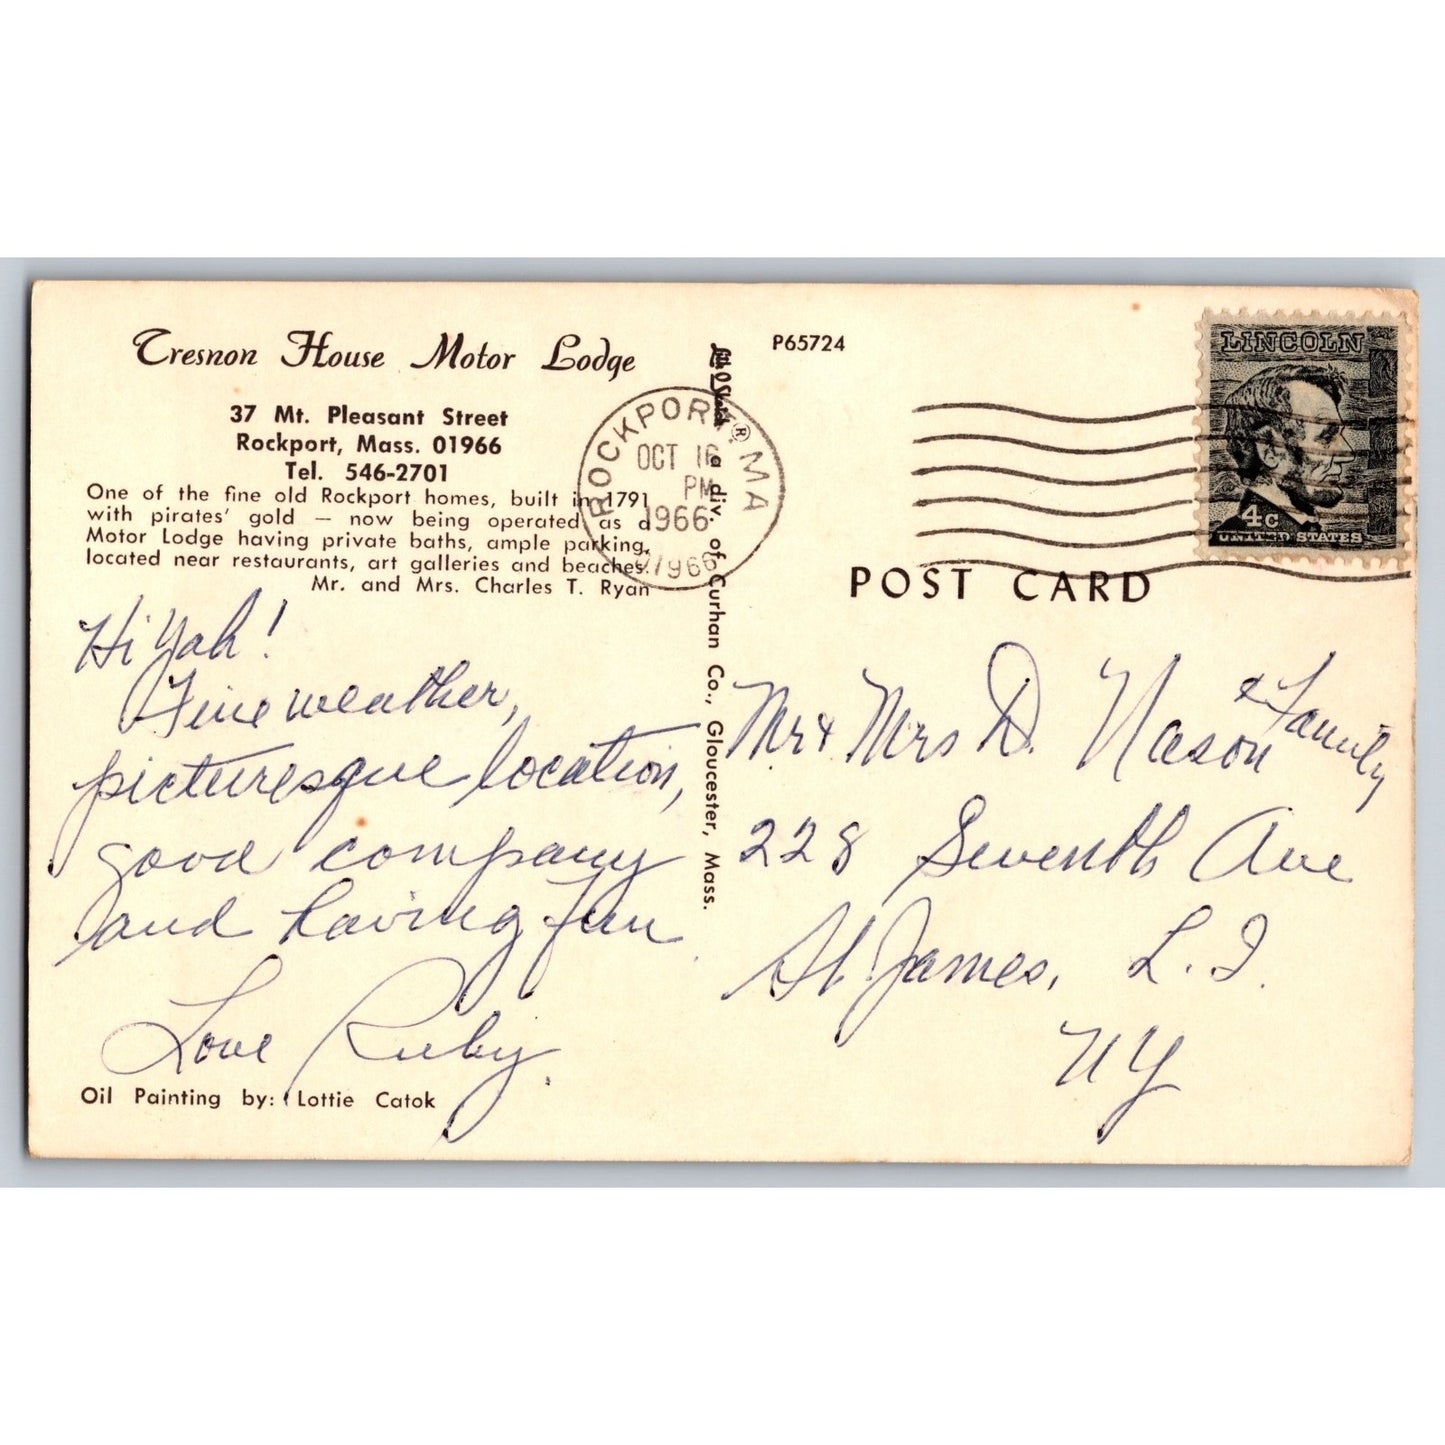 Tresnon House Motor Lodge
37 Mt. Pleasant Street
Rockport, Mass. 01966
Tel. 546-2701
One of the fine old Rockport homes, built in 1791
with pirates' gold — now being operated as a
Motor Lodge having private baths, ample parking,
located near restaurants, art galleries and beaches.
Mr. and Mrs. Charles T. Ryan
Hi Yah!
Fine weather,
picturesque location,
good company
and having fun.
Love Ruby.
Oil Painting by: Lottie Catok
® a div. of Curhan Co., Gloucester, Mass.
P65724
ROCKPORT, MA
OCT 16
PM
1966
01966
LINCOLN
4c
UNITED STATES
POST CARD
Mr & Mrs D. Nason & Family
228 Seventh Ave
St. James, L. I.
NY